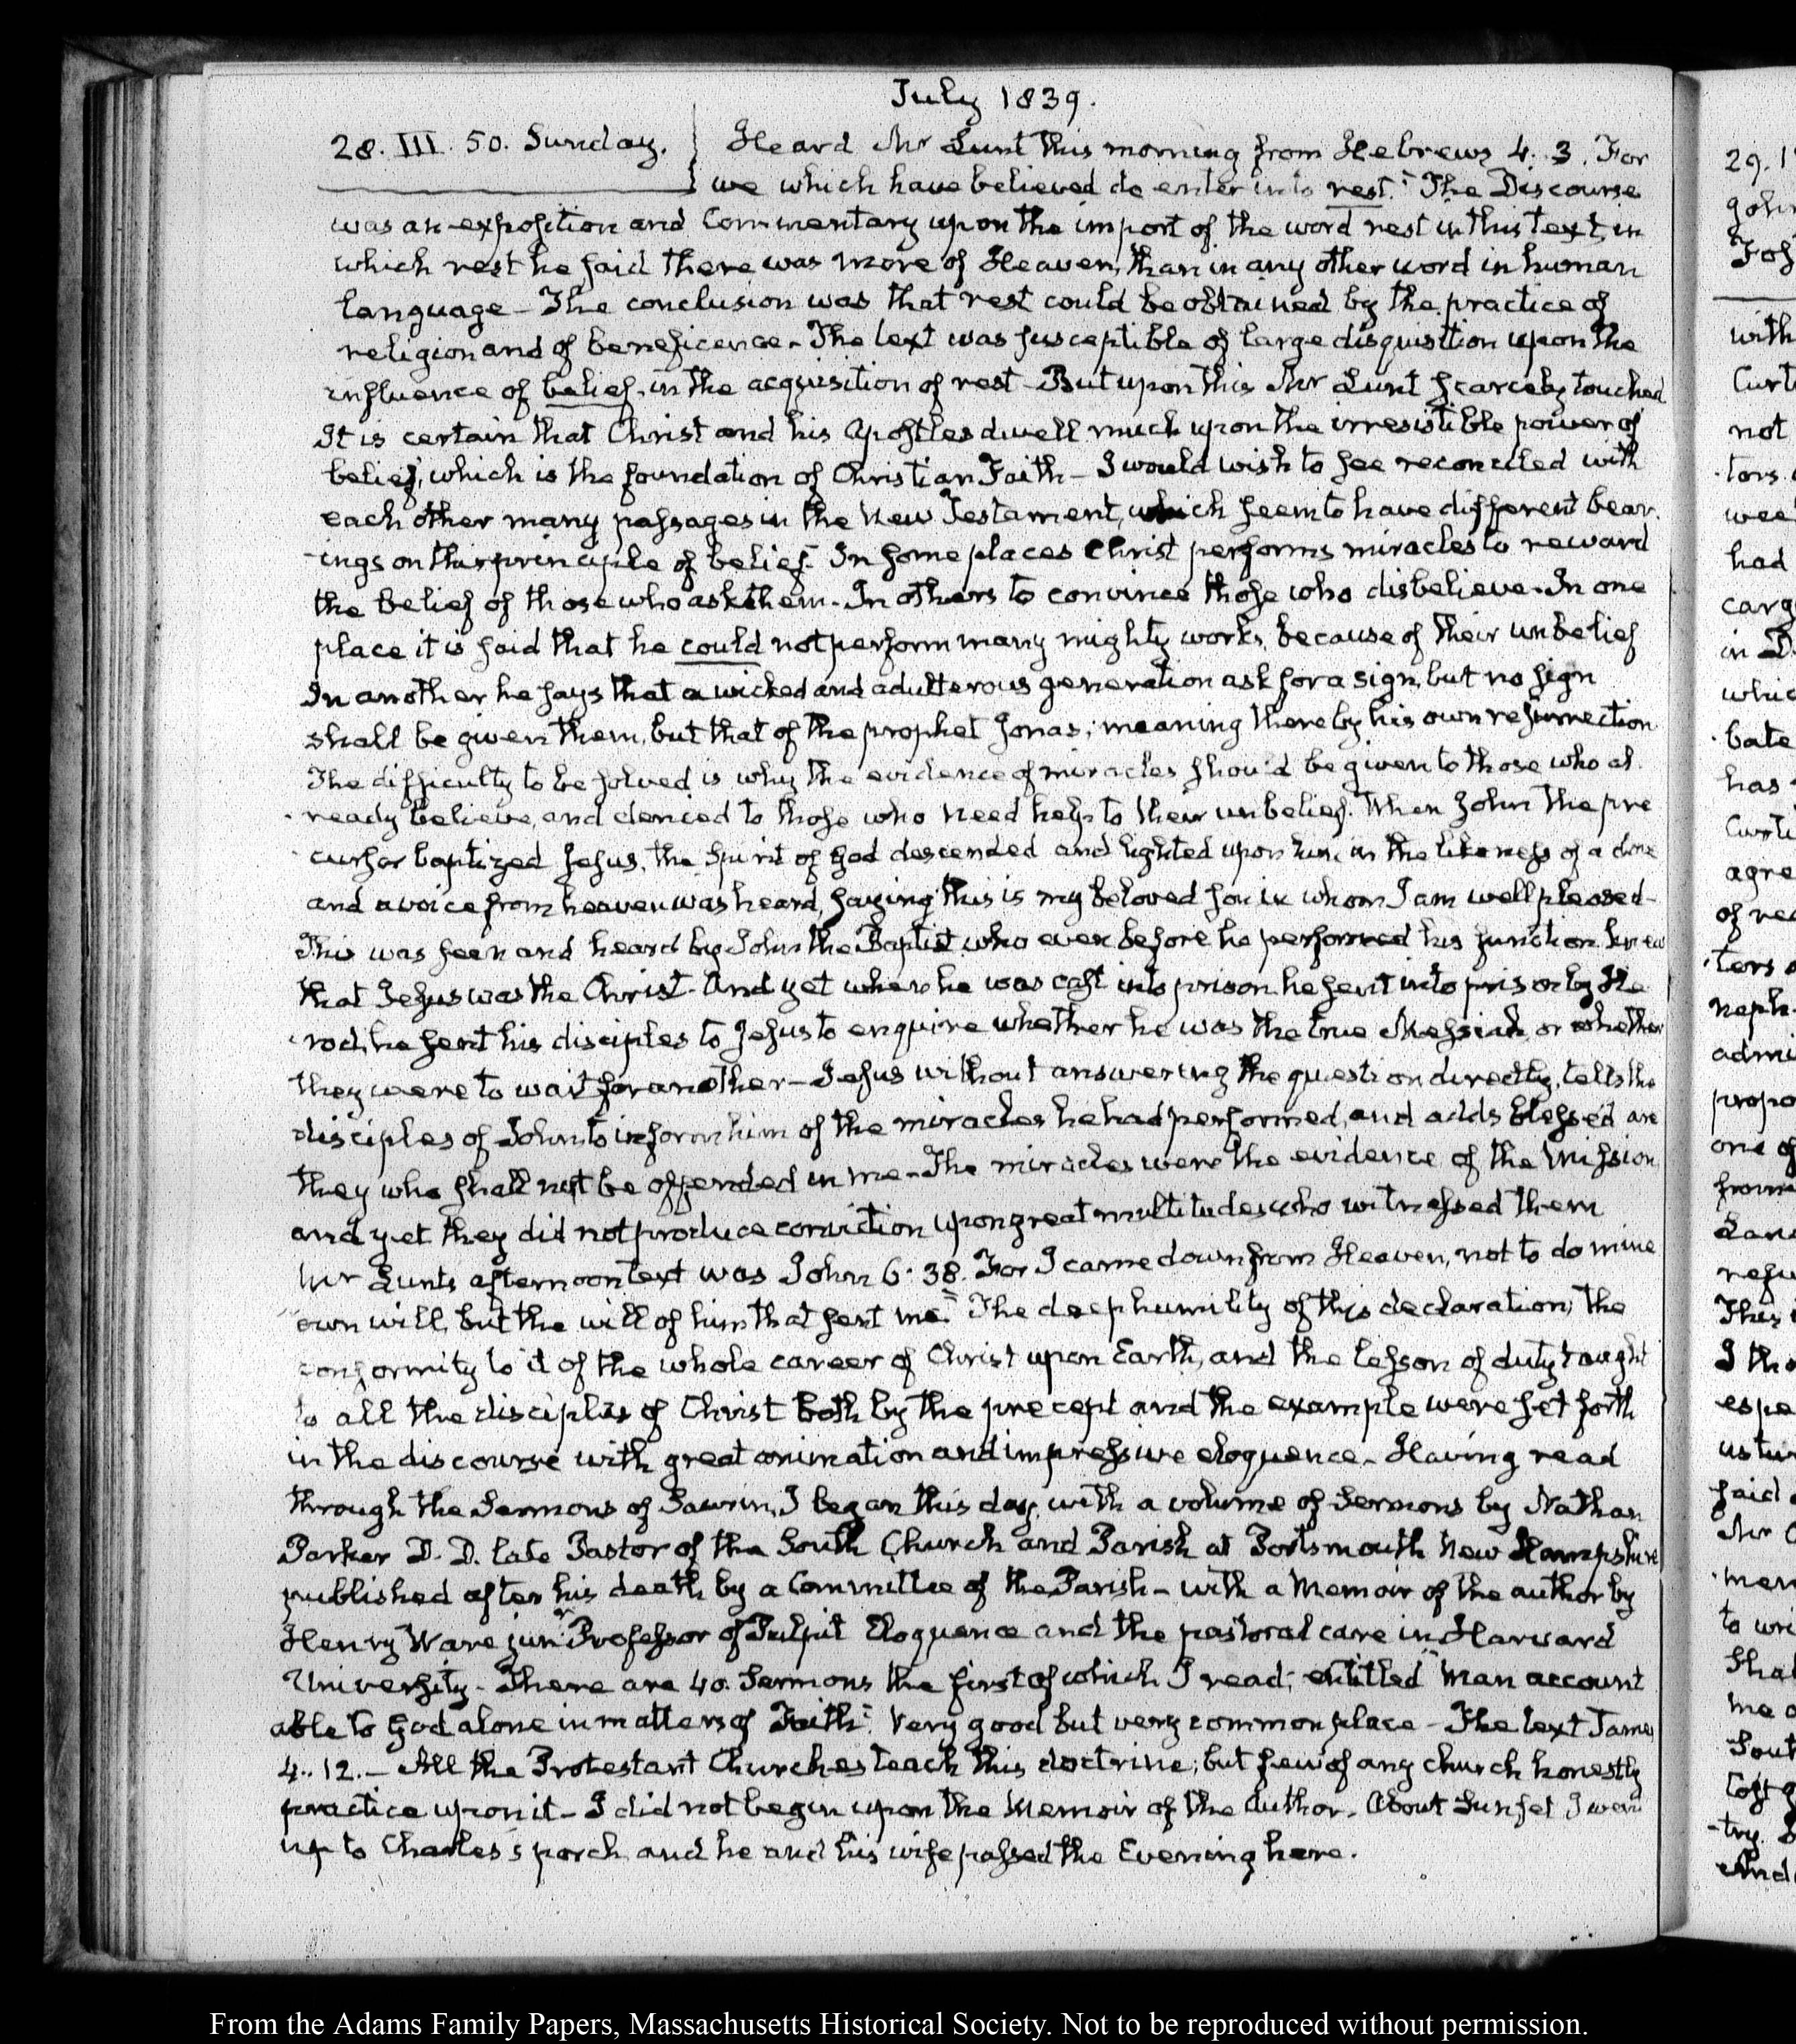 July 1839.
28. III. 50. Sunday. Heard Mr Lunt this morning from Hebrews 4. 3. For
we which have believed do enter into rest." The Discourse
was an exposition and Commentary upon the import of the word rest in this text, in
which rest he said there was more of Heaven, than in any other word in human
language - The conclusion was that rest could be obtained by the practice of
religion and of beneficence - The text was susceptible of large disquisition upon the
influence of belief, in the acquisition of rest - But upon this Mr Lunt scarcely touched
It is certain that Christ and his Apostles dwell much upon the irresistible power of
belief, which is the foundation of Christian Faith - I would wish to see reconciled with
each other many passages in the New Testament, which seem to have different bear-
ings on this principle of belief. In some places Christ performs miracles to reward
the belief of those who ask them - In others to convince those who disbelieve - In one
place it is said that he could not perform many mighty works, because of their unbelief
In another he says that a wicked and adulterous generation ask for a sign, but no sign
shall be given them, but that of the prophet Jonas; meaning thereby his own resurrection
The difficulty to be solved is why the evidence of miracles should be given to those who al-
ready believe, and denied to those who need help to their unbelief. When John the pre
cursor baptized Jesus, the Spirit of God descended and lighted upon him in the likeness of a dove
and a voice from heaven was heard, saying this is my beloved son in whom I am well pleased -
This was seen and heard by John the Baptist who even before he performed his function knew
that Jesus was the Christ - And yet when he was cast into prison he sent into prison by He
rod, he sent his disciples to Jesus to enquire whether he was the true Messiah, or whether
they were to wait for another - Jesus without answering the question directly, tells the
disciples of John to inform him of the miracles he had performed, and adds blessed are
they who shall not be offended in me - The miracles were the evidence of the Mission
and yet they did not produce conviction upon great multitudes who witnessed them
Mr Lunt's afternoon text was John 6. 38. For I came down from Heaven, not to do mine
own will, but the will of him that sent me." The deep humility of this declaration, the
conformity to it of the whole career of Christ upon Earth, and the lesson of duty taught
to all the disciples of Christ both by the precept and the example were set forth
in the discourse with great animation and impressive eloquence - Having read
through the Sermons of Saurin, I began this day, with a volume of Sermons by Nathan
Parker D. D. late Pastor of the South Church and Parish at Portsmouth New Hampshire
published after his death by a Committee of the Parish - with a Memoir of the author by
Henry Ware junr Professor of Pulpit Eloquence and the pastoral care in Harvard
University - There are 40. Sermons the first of which I read; entitled "Man account
able to God alone in matters of Faith". Very good but very common place - The text James
4. 12. - All the Protestant Churches teach this doctrine; but few of any church honestly
practice upon it - I did not begin upon the Memoir of the Author. About Sunset I went
up to Charles's porch, and he and his wife passed the Evening here.
29.
with
not
had
in D
has
agre
admi
propo
one of
This
I tho
espe
said
to wri
me
From the Adams Family Papers, Massachusetts Historical Society. Not to be reproduced without permission.